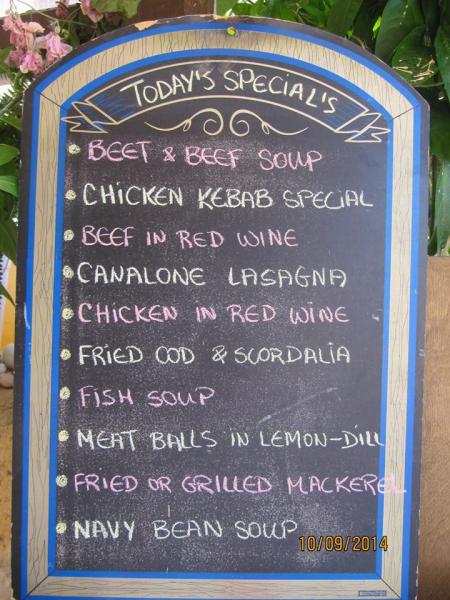 TODAY'S SPECIAL'S
BEET & BEEF SOUP
CHICKEN KEBAB SPECIAL
BEEF IN RED WINE
CANALONE LASAGNA
CHICKEN IN RED WINE
FRIED COD & SCORDALIA
FISH SOUP
MEAT BALLS IN LEMON-DILL
FRIED OR GRILLED MACKEREL
NAVY BEAN SOUP
10/09/2014